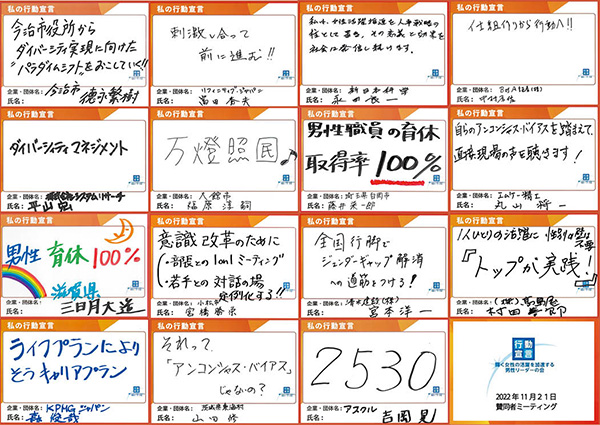 今治市役所から
ダイバーシティ実現に向けた
"パラダイムシフト"をおこしていく!!
企業・団体名: 今治市
氏名: 徳永繁樹
私の行動宣言
刺激し合って
前に進む!!
企業・団体名:
氏名:
私の行動宣言
私は、女性活躍推進を人事戦略の
企業・団体名: 新日本科学
氏名: 永田良一
私の行動宣言
仕組作りから行動へ!!
企業・団体名:
氏名:
ダイバーシティマネジメント
企業・団体名:
氏名: 平山宏
私の行動宣言
万燈照国♪
企業・団体名: 八幡市
氏名:
私の行動宣言
男性職員の育休
取得率100%
企業・団体名: 埼玉県白岡市
氏名: 藤井栄一郎
私の行動宣言
自らのアンコンシャス・バイアスを踏まえて、
直接現場の声を聴きます!
企業・団体名: エムケー精工
氏名: 丸山将一
私の行動宣言
男性育休100%
滋賀県
企業・団体名:
氏名: 三日月大造
私の行動宣言
意識改革のために
・部長との1on1ミーティング
・若手との対話の場
定例化する!!
企業・団体名: 小松市
氏名: 宮橋勝栄
私の行動宣言
全国行脚と
ジェンダーギャップ解消
への道筋をつける!
企業・団体名: 清水建設(株)
氏名: 宮本洋一
私の行動宣言
1人ひとりの活躍に 性別の壁は
不要
『トップが実践!』
企業・団体名: (株)高島屋
氏名: 村田善郎
私の行動宣言
ライフプランにより
そうキャリアプラン
企業・団体名: KPMGジャパン
氏名: 森俊哉
私の行動宣言
それって、
「アンコンシャス・バイアス」
じゃないの?
企業・団体名: 茨城県東海村
氏名: 山田修
私の行動宣言
2530
企業・団体名: アスクル
氏名: 吉岡晃
行動
宣言
輝く女性の活躍を加速する
男性リーダーの会
2022年11月21日
賛同者ミーティング